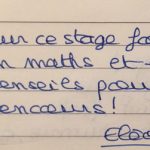 ur ce stage fa
n maths et
onseils pou
encours!
Elea